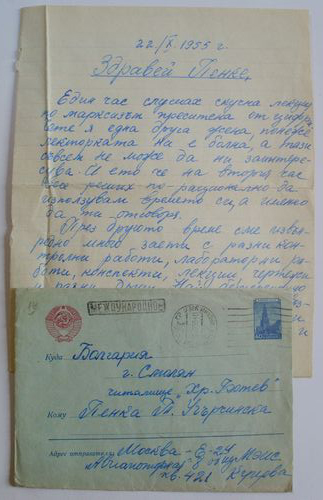 22/X 1955 г.
Здравей Пенке,
Един час слушах скучна лекция
по марксизъм преситена от цифри
чете я една друга жена понеже
лекторката ни е болна, а тази
съвсем не може да ни заинтере-
сува. И ето че на втория час
вече реших по-рационално да
използувам времето си, а именно
да ти отговоря.
През другото време сме извън-
редно много заети с разни кон-
тролни работи, лабораторни ра-
боти, конспекти, лекции, чертежи
МЕЖДУНАРОДНОЕ
Куда България
г. Смолян
читалище „Хр. Ботев"
Кому Пенка П.
Адрес отправителя: Москва - Е-24
Авиамоторная общ. МЭИС
кв. 421